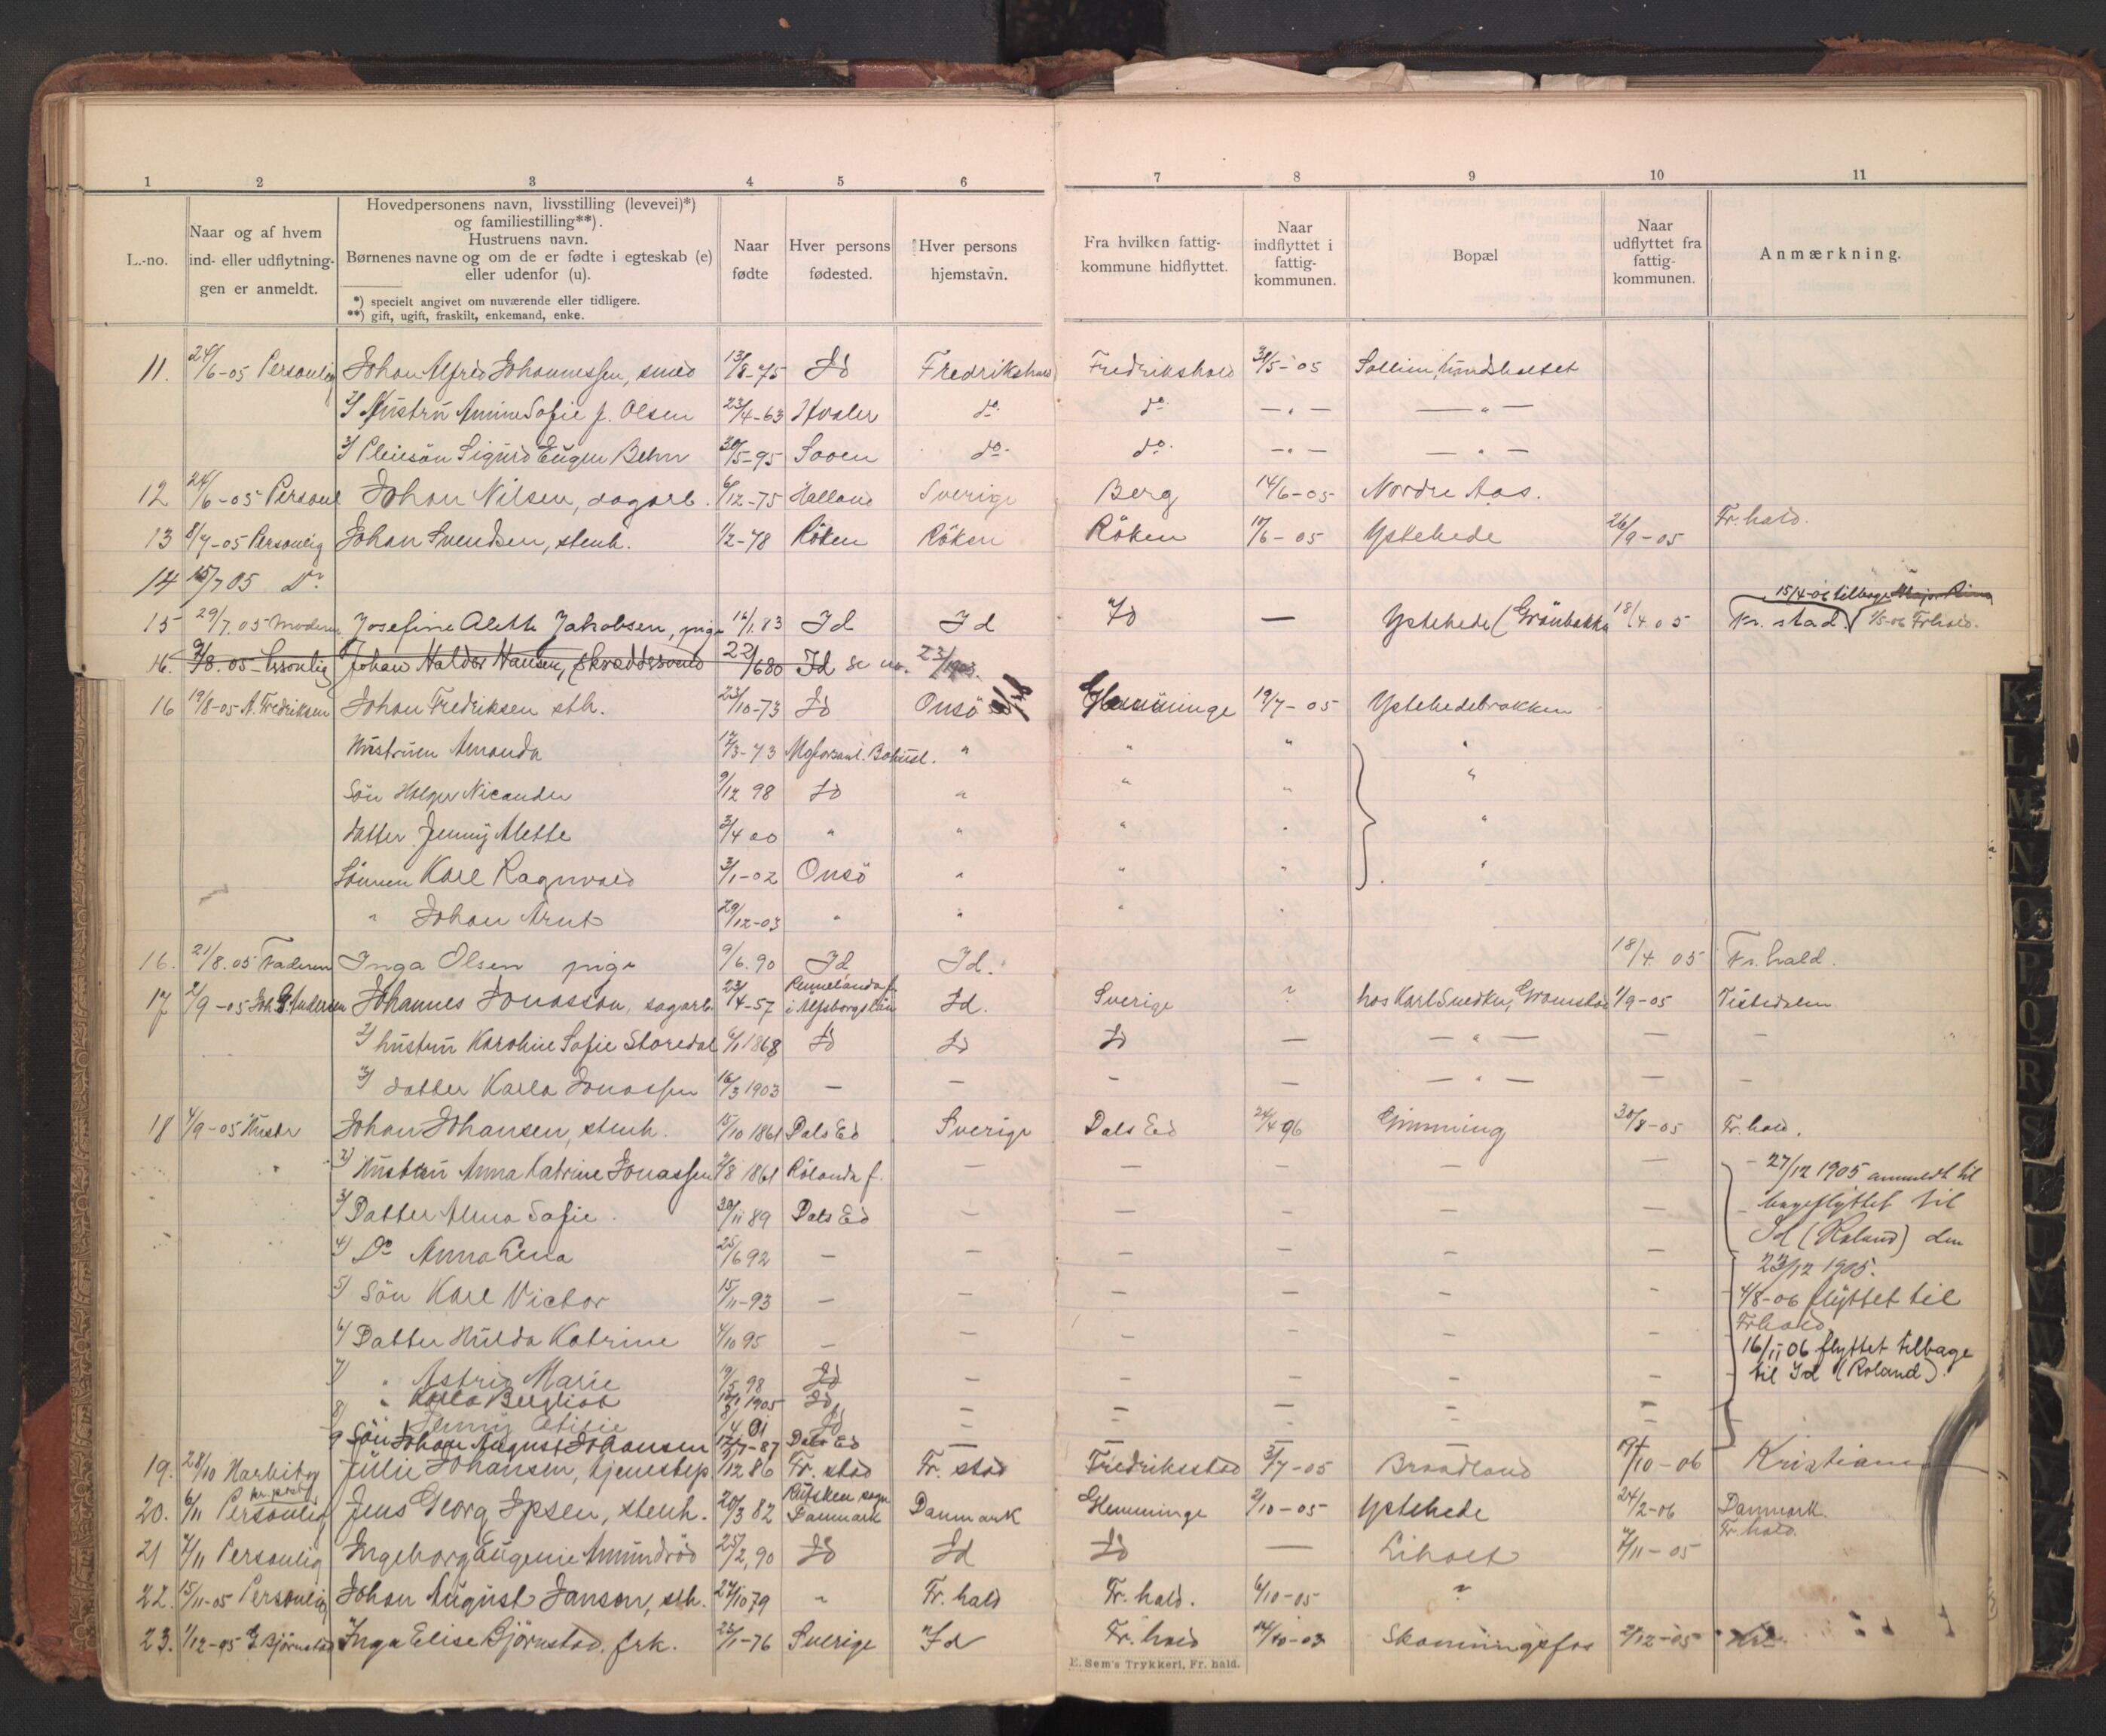 1 2 3 4 5 6 7 8 9 10 11
L.-no.
Naar og af hvem
ind- eller udflytnin-
gen er anmeldt.
Hovedpersonens navn, livsstilling (levevei)*)
og familiestilling**).
Hustruens navn.
Børnenes navne og om de er fødte i egteskab (e)
eller udenfor (u).
*) specielt angivet om nuværende eller tidligere.
**) gift, ugift, fraskilt, enkemand, enke.
Naar
fødte
Hver persons
fødested.
Hver persons
hjemstavn.
Fra hvilken fattig-
kommune hidflyttet.
Naar
indflyttet i
fattig-
kommunen.
Bopæl
Naar
udflyttet fra
fattig-
kommunen.
Anmærkning.
11. 24/6-05 Personlig Johan Alfred Johannessen, smed 13/8-75 Id Fredrikshald Fredrikshald 31/5-05
2) Hustru Amine Sofie f. Olsen 23/4-63 Hvaler do do — " — — " —
3) Pleiesön Sigurd Eugen Behn 30/5-95 do do — " — — " —
12 24/6-05 Personl Johan Nilsen, dagarb. 6/12-75 Halland Sverige Berg 14/6-05 Nordre Aas.
13 8/7-05 Personlig Johan Svendsen, stenh. 1/2-78 Röken Röken Röken 17/6-05 Ystehede 26/9-05 Fr.hald.
14 15/7 05 Do
15 29/7.05 Modern Josefine Alette Jakobsen, pige 16/1.83 Id Id Id — Ystehede (Grönbakka 18/4 05 Fr. stad. 15/4-06 tilbage 1/5-06 Frhald.
16. 9/8.05 Personlig Johan Haldor Hansen, skreddersvend 22/6 80 Id se no. 23/1903.
16 19/8-05 A. Fredriksen Johan Fredriksen sth. 23/10-73 Id Onsö Glemminge 19/7-05 Ystehedebrakken
Hustruen Amanda 12/3-73 Bohusl. " " " "
Sön Holger Nicander 9/12 98 Id " " " "
Datter Jenny Alette 3/4 00 " " " " "
Sönnen Karl Ragnvald 3/1-02 Onsö " " " "
" Johan Arnt 29/12-03 " " " "
16. 21/8.05 Faderen Inga Olsen pige 9/6.90 Id Id. 18/4 05 Fr.hald.
17 2/9-05 Joh. G. Andersen Johannes Jonasson, sagarb. 23/4-57 Rennelanda f. i Alfsborgs län Id. Sverige ? hos Karl Snedker, Gramstad 1/9-05 Tistedalen
2) hustru Karoline Sofie Storedal 6/1 1868 Id Id Id — — " — — —
3) datter Karla Jonassen 16/3 1903 — — — — — " — — —
18 4/9-05 Hustr Johan Johansen, stenh. 15/10 1861 Dals Ed Sverige Dals Ed 24/4 96 Gimming 30/8-05 Fr.hald.
2) Hustru Anna Katrine Jonassen 2/8 1861 Rölanda f. — — — — — 27/12 1905 anmeldt til
bageflyttet til
3) Datter Alma Sofie. 30/11 89 Dals Ed — — — — — Id (Roland) den
4) Do Anna Lena 25/6 92 — — — — — 23/12 1905.
5) Sön Karl Victor 15/11-93 — — — — — — 4/8-06 flyttet til
Frhald.
6) Datter Hulda Katrine 4/10 95 — — — — — — 16/11 06 flyttet tilbage
til Id (Roland).
7) " Astrid Marie 19/5 98 Id — — — — —
" Karla Bergliot 1905 Id — — — — —
8) Jenny Otilie 8/4 01 Id — — — — —
9 Sön Johan August Johansen 12/7-87 Dals Ed
19. 28/10 Julie Johansen, tjenestep 9/12 86 Fr. stad Fr. stad Fredriksstad 3/7-05 Braadland 19/10-06 Kristiania
20. 6/11 Personlig Jens Georg Ipsen, stenh. 20/3 82 Rutsken sogn Danmark Danmark Glemminge 2/10-05 Ystehede 24/2-06 Danmark.
21 7/11 Personlig Ingeborg Eugenie Amundröd 25/2.90 Id Id Id — Liholt 7/11-05 Fr.hald.
22. 15/11-05 Personlig Johan August Janson, sth. 27/10 79 " Fr. hald Fr. hald. 6/10-05 ?
23. 1/12-05 G Björnstad Inga Elise Björnstad, frk. 22/1-76 Sverige Id Fr. hald 14/10-03 Skonningsfos 2/12-05
E. Sem's Trykkeri, Fr. hald.
K
L
M
N
O
P
Q
R
S
T
U
V
W